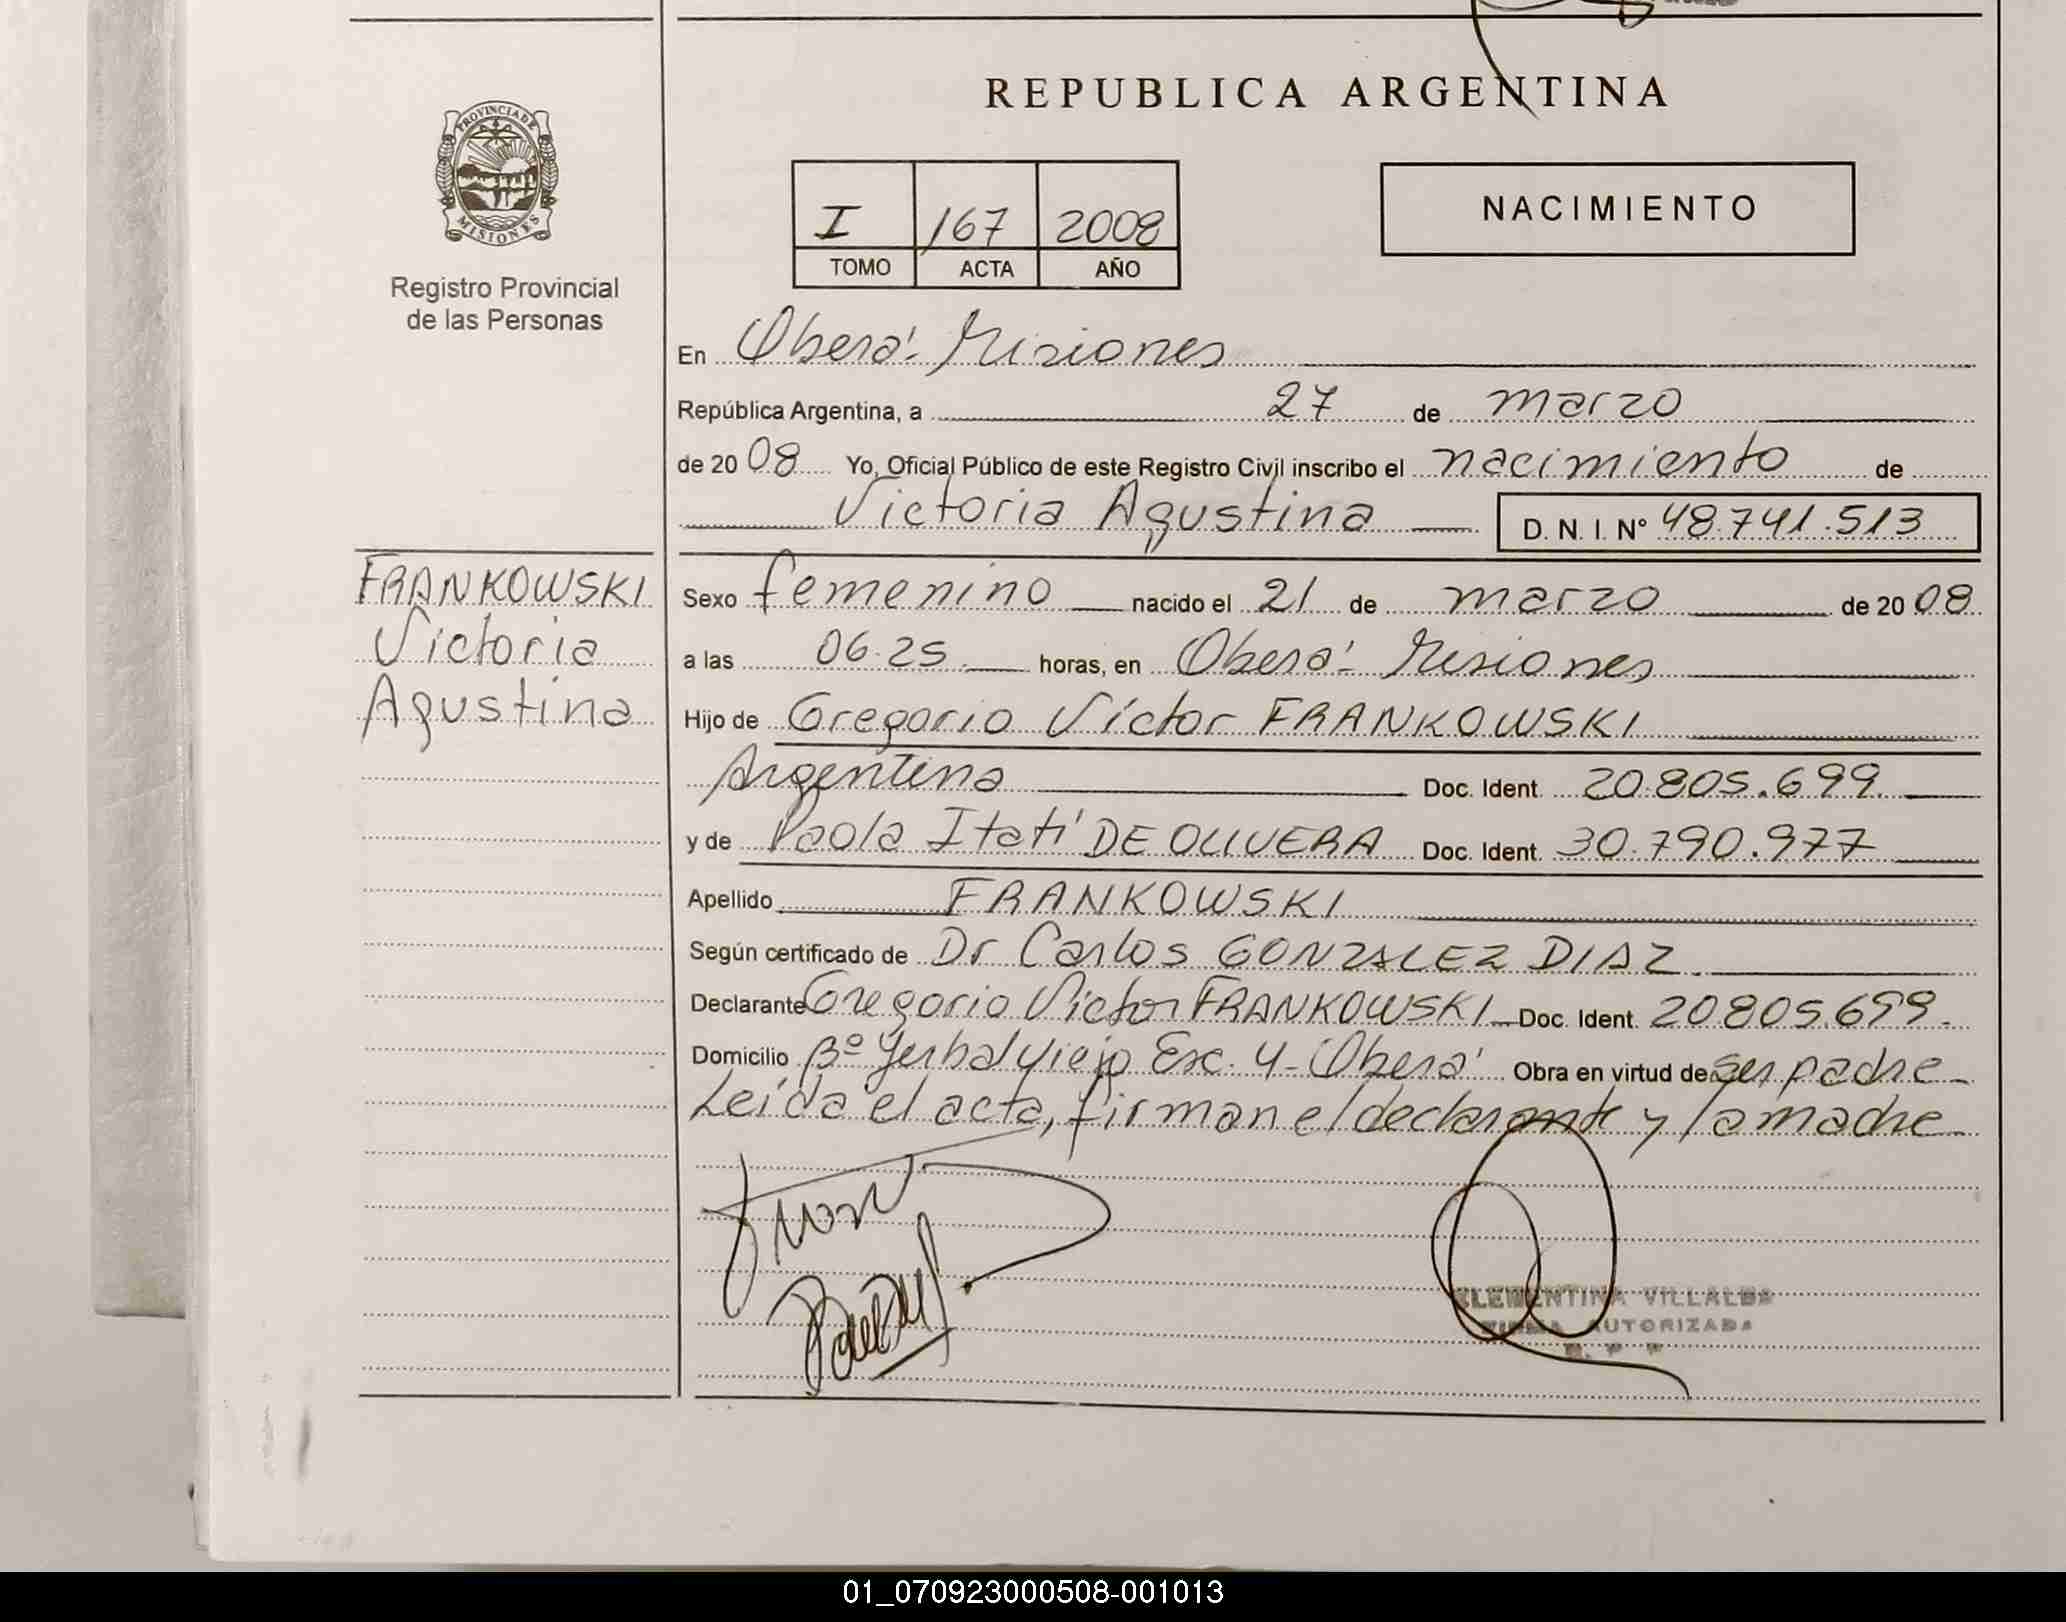 REPUBLICA ARGENTINA
PROVINCIA DE
MISIONES
Registro Provincial
de las Personas
I 167 2008
TOMO ACTA AÑO
NACIMIENTO
En Oberá - Misiones
República Argentina, a 27 de marzo
de 20 08 Yo, Oficial Público de este Registro Civil inscribo el nacimiento de
Victoria Agustina D. N. I. Nº 48.741.513
FRANKOWSKI
Victoria
Agustina
Sexo femenino nacido el 21 de marzo de 20 08
a las 06.25 horas, en Oberá - Misiones
Hijo de Gregorio Víctor FRANKOWSKI
Argentina Doc. Ident. 20.805.699
y de Paola Itatí DE OLIVERA Doc. Ident. 30.790.977
Apellido FRANKOWSKI
Según certificado de Dr Carlos GONZALEZ DIAZ.
Declarante Gregorio Víctor FRANKOWSKI Doc. Ident. 20.805.699.
Domicilio Bº Yerbal Viejo Esc. 4 - Oberá Obra en virtud de ser padre
Leída el acta, firman el declarante y la madre
CLEMENTINA VILLALBA
FIRMA AUTORIZADA
01_070923000508-001013